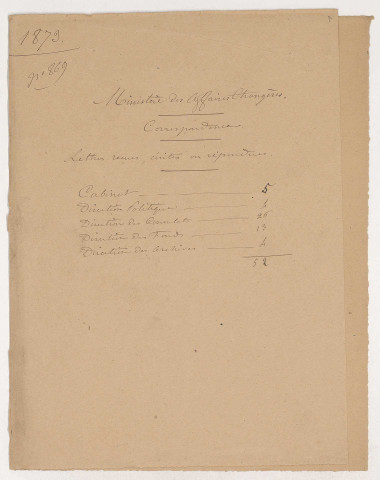 1873.
nº 869
Ministère des Affaires Etrangères.
Correspondance
Lettres reçues, écrites ou répondues.
Cabinet 5
Direction Politique 4
Direction des Consulats 26
Direction des Fonds 13
Direction des Archives 4
52